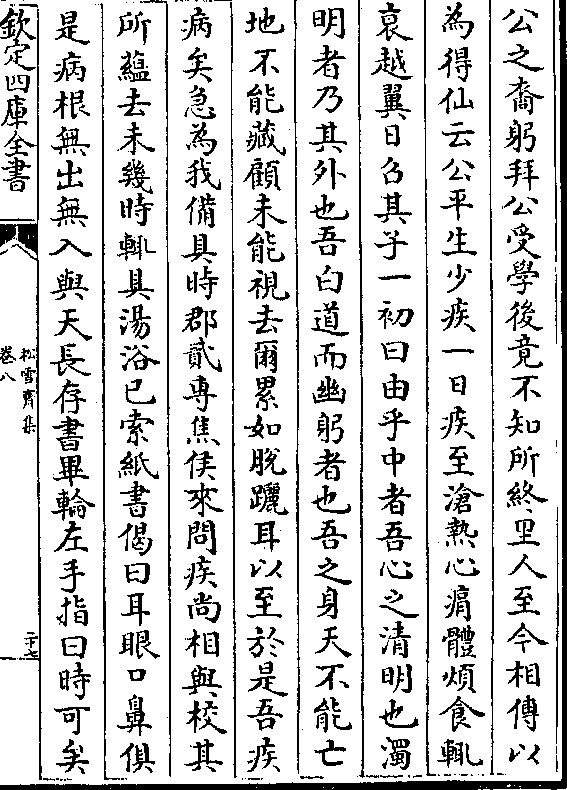 公之裔躬拜公受學後竟不知所終里人至今相傳以
為得仙云公平生少疾一日疾至滄熱心痟體煩食輒
哀越翼日召其子一初曰由乎中者吾心之清明也濁
明者乃其外也吾白道而幽躬者也吾之身天不能亡
地不能藏顧未能視去爾累如脫躧耳以至於是吾疾
病矣急為我備具時郡貳專焦侯來問疾尚相與校其
所蘊去未幾時輒具湯浴已索紙書偈曰耳眼口鼻俱
是病根無出無入與天長存書畢輪左手指曰時可矣
欽定四庫全書
松雪齋集
卷八
二十七